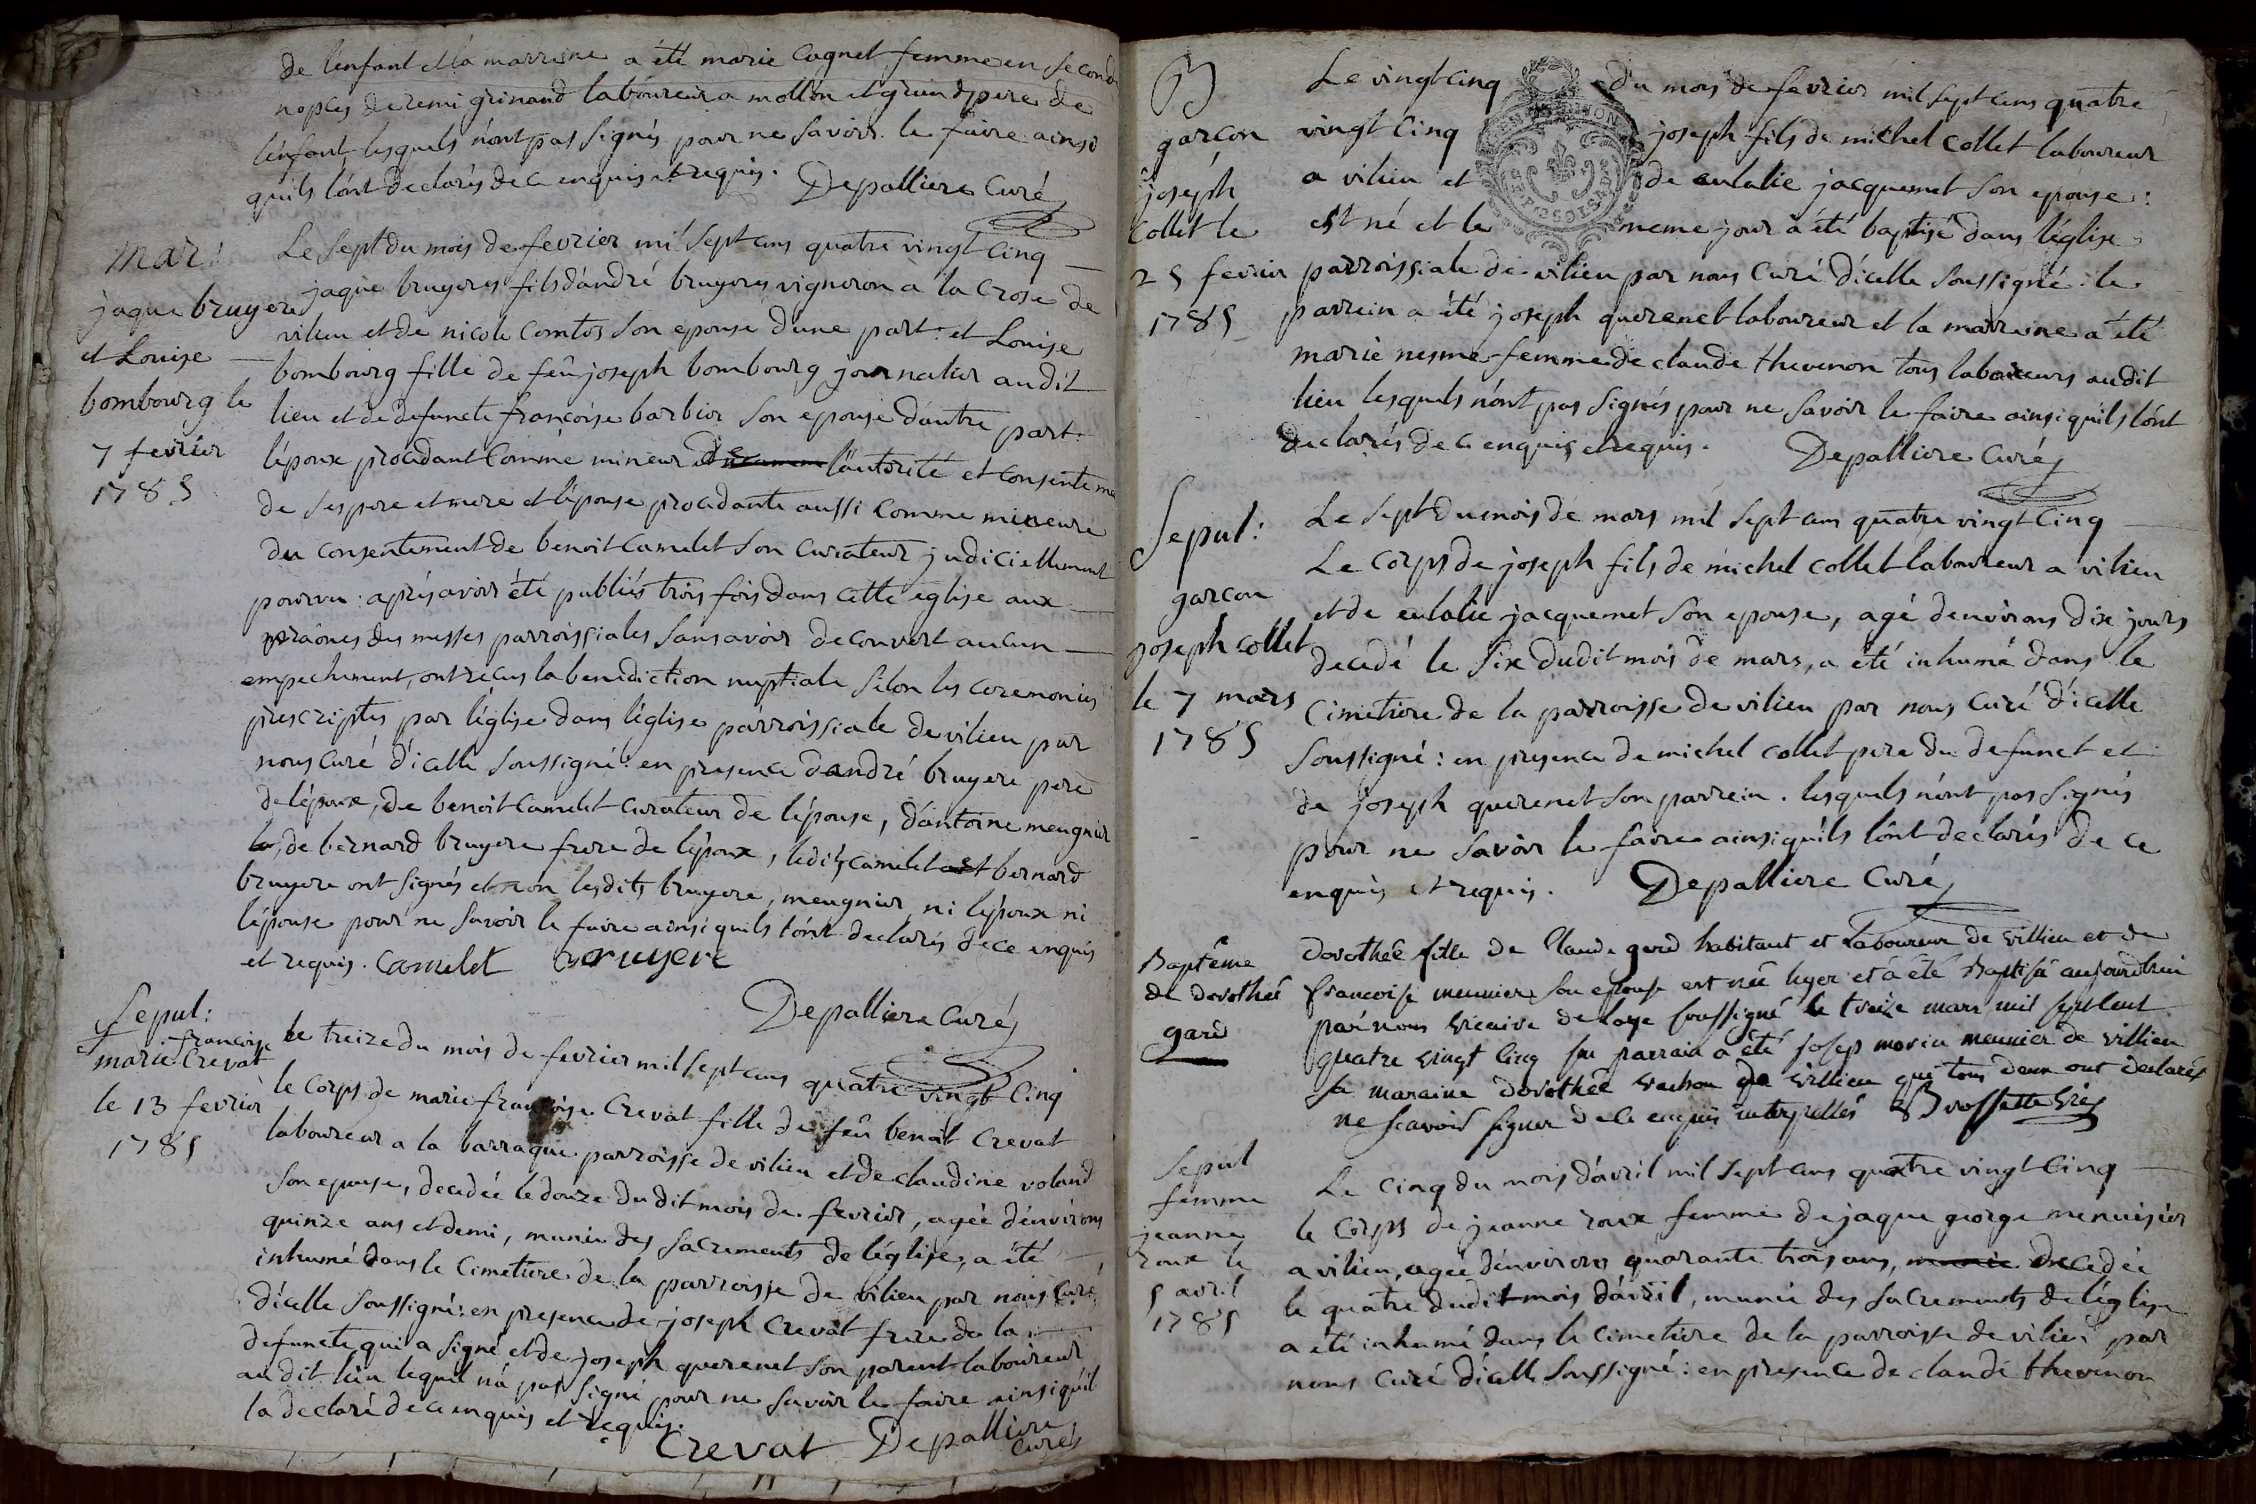 de l'enfant et la marreine a été marie Cagnet femme en seconde
nopces de remi grinand laboureur a mollon et grand pere de
l'enfant, lesquels n'ont pas signés pour ne savoir le faire ainsi
qu'ils l'ont declarés de ce enquis et requis. Depalliere Curé
Mar:
jaque bruyere
et Louise
bombourg le
7 fevrier
1785
Le sept du mois de fevrier mil sept cens quatre vingt Cinq
jaque bruyeres fils d'andré bruyeres vigneron a la Crose de
vilieu et de nicole Comtos son epouse d'une part: et Louise
bombourg fille de feû joseph bombourg journalier audit
lieu et de defuncte françoise barbier son epouse d'autre part.
l'époux procedant Comme mineur de l'autorité et consenteme
de ses pere et mere et l'épouse procedante aussi comme mineure
du consentement de benoit Camelet son Curateur judiciellement
pourvu: aprés avoir été publiés trois fois dans cette eglise aux
prâones des messes parroissiales sans avoir decouvert aucun
empechement, ont reçus la benediction nuptiale selon les ceremonies
prescriptes par l'église dans l'église parroissiale de vilieu par
nous Curé d'icelle soussigné: en presence d'andré bruyere pere
de l'époux, de benoit Camelet Curateur de l'épouse, d'antoine meugnier
de bernard bruyere frere de l'époux, ledit Camelet et bernard
bruyere ont signés et non lesdits bruyere, meugnier ni l'époux ni
l'épouse pour ne savoir le faire ainsi quils l'ont declarés de ce enquis
et requis. Camelet Bruyere
Depalliere Curé
Sepul:
françoise
marie Crevat
le 13 fevrier
1785
Le treize du mois de fevrier mil sept cens quatre vingt Cinq
le corps de marie françoise Crevat fille de feû benoit Crevat
laboureur a la barraque parroisse de vilieu et de claudine voland
son epouse, decedée le douze du dit mois de fevrier, agée d'environs
quinze ans et demi, munie des sacrements de l'église, a été
inhumé dans le Cimetiere de la parroisse de vilieu par nous Curé
d'icelle soussigné: en presence de joseph Crevat frere de la
defuncte qui a signé et de joseph querenet son parent laboureur
audit lieu lequel n'a pas signé pour ne savoir le faire ainsi qu'il
la declaré de ce enquis et requis.
Crevat Depalliere
Curé
B
garçon
joseph
Collet le
25 fevrier
1785
Le vingt Cinq du mois de fevrier mil sept cens quatre
vingt Cinq joseph fils de michel Collet laboureur
a vilieu et de eulalie jacquemet son epouse:
est né et le meme jour a été baptisé dans l'église
parroissiale de vilieu par nous Curé d'icelle soussigné: le
parrein a été joseph querenet laboureur et la marreine a été
marie nesme femme de claude thevenon tous laboureurs audit
lieu lesquels n'ont pas signés pour ne savoir le faire ainsi qu'ils l'ont
declarés de ce enquis et requis. Depalliere Curé
Sepul:
garçon
joseph collet
le 7 mars
1785
Le sept du mois de mars mil sept cens quatre vingt Cinq
Le corps de joseph fils de michel collet laboureur a vilieu
et de eulalie jacquemet son epouse, agé d'environs dix jours
decedé le six dudit mois de mars, a été inhumé dans le
Cimetiere de la parroisse de vilieu par nous Curé d'icelle
soussigné: en presence de michel collet pere du defunct et
de joseph querenet son parrein. lesquels n'ont pas signés
pour ne savoir le faire ainsi qu'ils l'ont declarés de ce
enquis et requis. Depalliere Curé
Baptême
de dorothée
garé
dorothée fille de Claude habitant et Laboureur de villieu et de
francoise meunier son epouse est née hyer et a été Baptisée aujourdhui
par nous vicaire de Loye soussigné le treize mars mil sept cent
quatre vingt Cinq son parrain a été josep marie meunier de villieu
sa maraine dorothée vachon de villieu qui tous deux ont declarés
ne scavoir signer de ce enquis interpellés Brossette vic
Sepul
femme
jeanne
roux le
5 avril
1785
Le Cinq du mois d'avril mil sept cens quatre vingt Cinq
le Corps de jeanne roux femme de jaque george menuisier
a vilieu, agée d'environs quarante trois ans, decedée
le quatre dudit mois d'avril, munie des sacrements de l'église
a été inhumé dans le Cimetiere de la parroisse de vilieu par
nous Curé d'icelle soussigné: en presence de claude thevenon